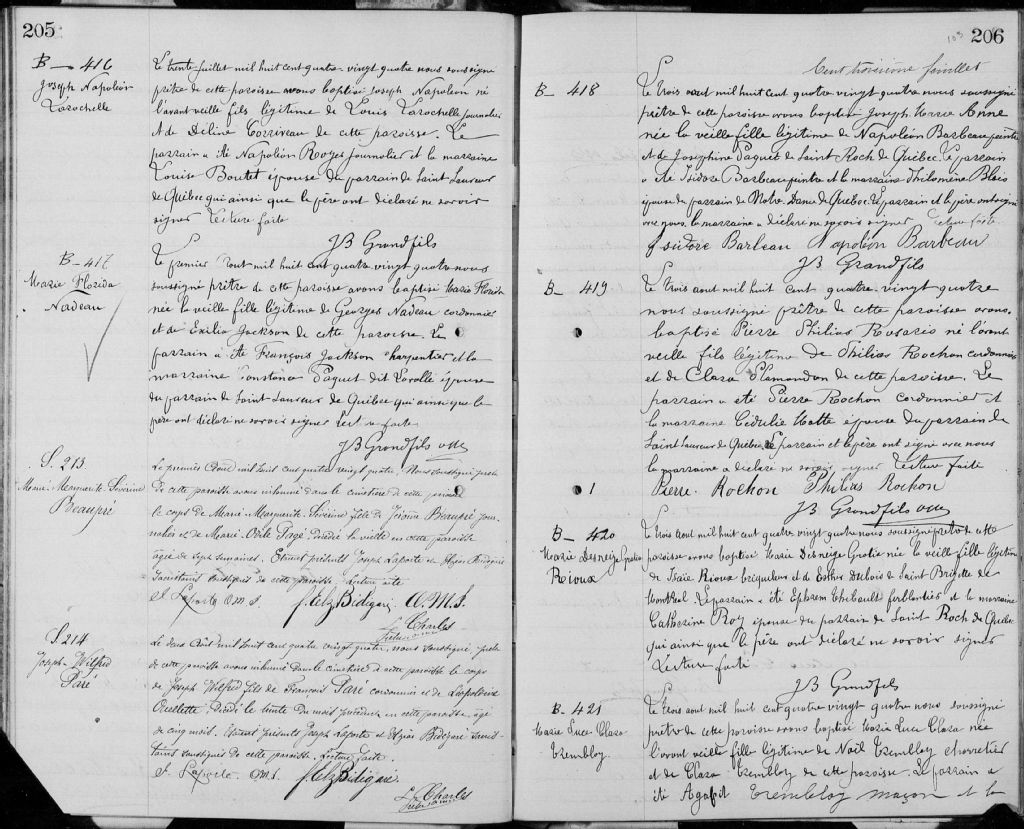 205
B — 416
Joseph Napoléon
Larochelle
Le trente juillet mil huit cent quatre-vingt quatre nous soussigné
prêtre de cette paroisse avons baptisé Joseph Napoléon né
l'avant veille fils légitime de Louis Larochelle journalier
et de Déline Corriveau de cette paroisse. Le
parrain a été Napoléon Royer journalier et la marraine
Louise Boutet épouse du parrain de Saint Sauveur
de Québec qui ainsi que le père ont déclaré ne savoir
signer Lecture faite
JB Grandfils
B — 417
Marie Florida
Nadeau
Le premier Aout mil huit cent quatre vingt quatre nous
soussigné prêtre de cette paroisse avons baptisé Marie Florida
née la veille fille légitime de Georges Nadeau cordonnier
et de Exilia Jackson de cette paroisse. Le
parrain a été François Jackson charpentier et la
marraine Paquet dit Lavallé épouse
du parrain de Saint-Sauveur de Québec qui ainsi que le
père ont déclaré ne savoir signer Lecture faite
JB Grandfils
S. 213
Marie-Marguerite-Séverine
Beaupré
Le premier Août mil huit cent quatre vingt quatre, Nous soussigné prêtre
de cette paroisse avons inhumé dans le cimetière de cette paroisse
le corps de Marie-Marguerite-Séverine fille de Jérôme Beaupré jour-
nalier et de Marie Odile Pagé décédé la veille en cette paroisse
âgée de sept semaines. Etaient présents Joseph Laporte et Elzéar Bédigaré
Sacristains soussignés de cette paroisse. Lecture faite
J. Laporte O.M.I. f. Elz Bédigaré O.M.I.
Charles
S. 214
Joseph-Wilfrid
Paré
Le deux Août mil huit cent quatre vingt quatre, nous soussigné, prêtre
de cette paroisse avons inhumé dans le cimetière de cette paroisse le corps
de Joseph Wilfrid fils de François Paré cordonnier et de Léopoldine
Ouellette. Décédé le trente du mois précédent en cette paroisse, âgé
de cinq mois. Etaient présents Joseph Laporte et Elzéar Bédigaré Sacris-
tains soussignés de cette paroisse. Lecture faite.
J. Laporte. O.M.I. f. Elz Bédigaré.
Charles
103 206
Cent troisième feuillet
B — 418
Le trois aout mil huit cent quatre vingt quatre nous soussigné
prêtre de cette paroisse avons baptisé Joseph Anne
née la veille fille légitime de Napoléon Barbeau peintre
et de Joséphine Paquet de Saint Roch de Québec. Le parrain
a été Isidore Barbeau peintre et la marraine Philomène Blais
épouse du parrain de Notre Dame de Québec. Le parrain et le père ont signé
avec nous la marraine a déclaré ne savoir signer Lecture faite
Isidore Barbeau Napoléon Barbeau
JB Grandfils
B — 419
Le trois aout mil huit cent quatre vingt quatre
nous soussigné prêtre de cette paroisse avons
baptisé Pierre Philias Rosario né l'avant
veille fils légitime de Philias Rochon cordonnier
et de Clara Plamondon de cette paroisse. Le
parrain a été Pierre Rochon cordonnier et
la marraine Cédulie Hotte épouse du parrain de
Saint Sauveur de Québec Le parrain et le père ont signé avec nous
la marraine a déclaré ne savoir signer Lecture faite
Pierre Rochon Philias Rochon
JB Grandfils
B — 420
Marie Desneige
Rioux
Le trois aout mil huit cent quatre vingt quatre nous soussigné prêtre de cette
paroisse avons baptisé Marie Desneige née la veille fille légitime
de Isaïe Rioux briqueleur et de Esther Dubois de Saint Brigitte de
Montréal. Le parrain a été Ephrem Thibault ferblantier et la marraine
Catherine Roy épouse du parrain de Saint Roch de Québec
qui ainsi que le père ont déclaré ne savoir signer
Lecture faite
JB Grandfils
B — 421
Marie Luce Clara
Tremblay
Le trois aout mil huit cent quatre vingt quatre nous soussigné
prêtre de cette paroisse avons baptisé Marie Luce Clara née
l'avant veille fille légitime de Noël Tremblay charretier
et de Clara Tremblay de cette paroisse. Le parrain a
été Agapit Tremblay maçon et la